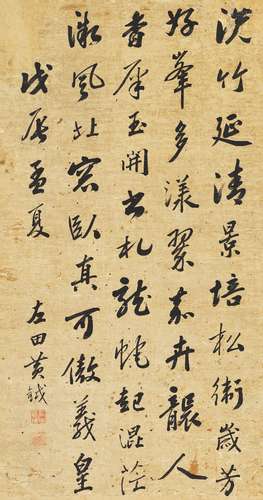 洗竹延清景培松衛歲芳
好峯多漾翠嘉卉襲人
香犀玉開書札龍蛇起混茫
微風北窗臥真可傲羲皇
戊辰孟夏
左田黃鉞